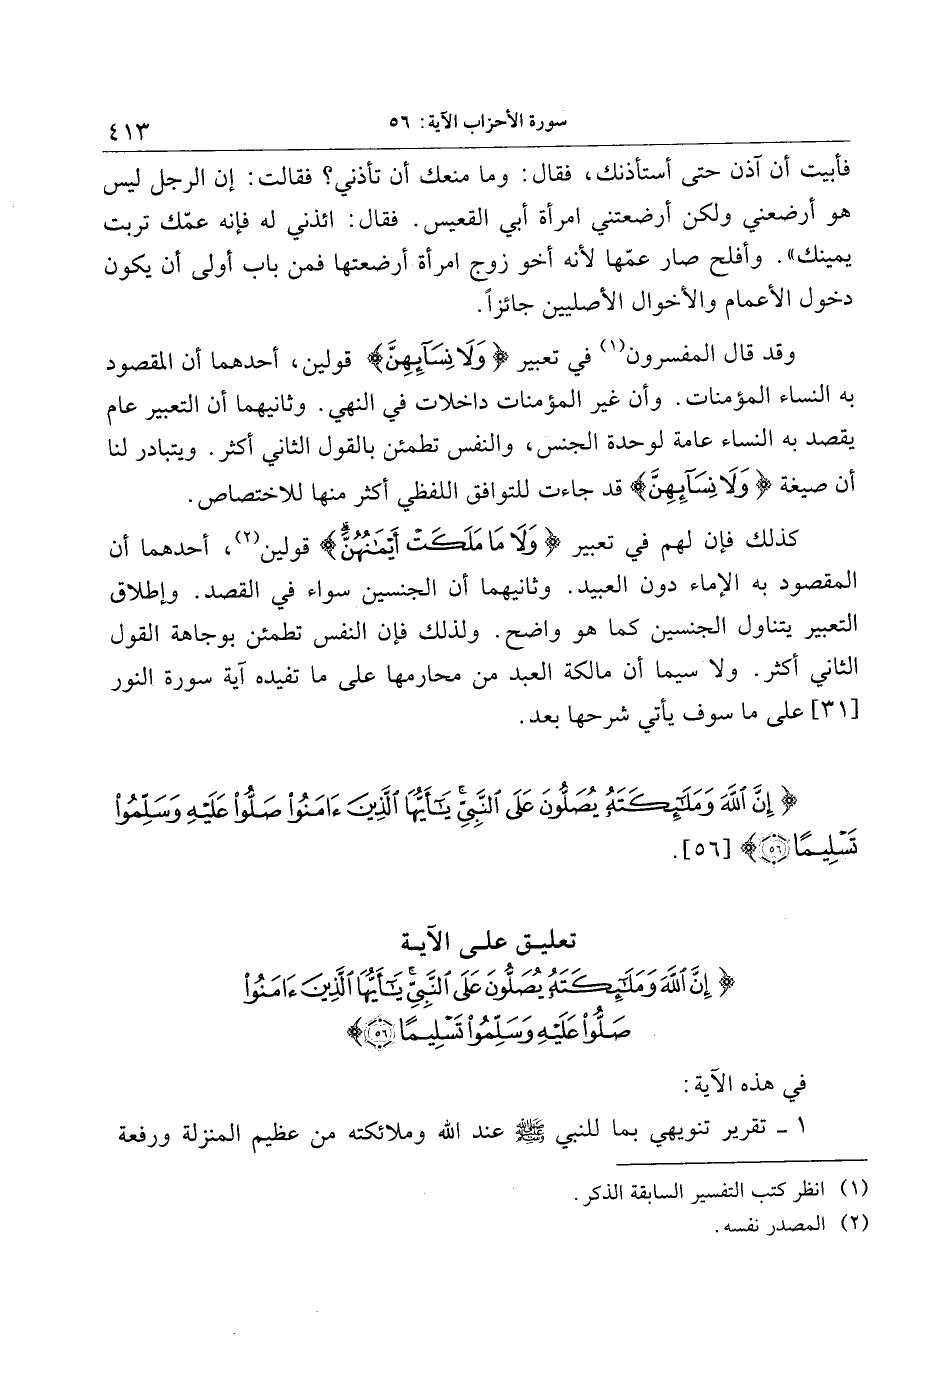 سورة الأحزاب الآية: ٥٦
٤١٣
فأبيت أن آذن حتى أستأذنك، فقال: وما منعك أن تأذني؟ فقالت: إن الرجل ليس
هو أرضعني ولكن أرضعتني امرأة أبي القعيس. فقال: ائذني له فإنه عمّك تربت
يمينك». وأفلح صار عمّها لأنه أخو زوج امرأة أرضعتها فمن باب أولى أن يكون
دخول الأعمام والأخوال الأصليين جائزاً.
وقد قال المفسرون(١) في تعبير ﴿وَلَا نِسَآئِهِنَّ﴾ قولين، أحدهما أن المقصود
به النساء المؤمنات. وأن غير المؤمنات داخلات في النهي. وثانيهما أن التعبير عام
يقصد به النساء عامة لوحدة الجنس، والنفس تطمئن بالقول الثاني أكثر. ويتبادر لنا
أن صيغة ﴿وَلَا نِسَآئِهِنَّ﴾ قد جاءت للتوافق اللفظي أكثر منها للاختصاص.
كذلك فإن لهم في تعبير ﴿وَلَا مَا مَلَكَتْ أَيْمَٰنُهُنَّۗ﴾ قولين(٢)، أحدهما أن
المقصود به الإماء دون العبيد. وثانيهما أن الجنسين سواء في القصد. وإطلاق
التعبير يتناول الجنسين كما هو واضح. ولذلك فإن النفس تطمئن بوجاهة القول
الثاني أكثر. ولا سيما أن مالكة العبد من محارمها على ما تفيده آية سورة النور
[٣١] على ما سوف يأتي شرحها بعد.
﴿إِنَّ ٱللَّهَ وَمَلَٰٓئِكَتَهُۥ يُصَلُّونَ عَلَى ٱلنَّبِيِّۚ يَٰٓأَيُّهَا ٱلَّذِينَ ءَامَنُوا۟ صَلُّوا۟ عَلَيْهِ وَسَلِّمُوا۟
تَسْلِيمًا ٥٦﴾ [٥٦].
تعليق على الآية
﴿إِنَّ ٱللَّهَ وَمَلَٰٓئِكَتَهُۥ يُصَلُّونَ عَلَى ٱلنَّبِيِّۚ يَٰٓأَيُّهَا ٱلَّذِينَ ءَامَنُوا۟
صَلُّوا۟ عَلَيْهِ وَسَلِّمُوا۟ تَسْلِيمًا ٥٦﴾
في هذه الآية:
١ ـ تقرير تنويهي بما للنبي ﷺ عند الله وملائكته من عظيم المنزلة ورفعة
(١) انظر كتب التفسير السابقة الذكر.
(٢) المصدر نفسه.